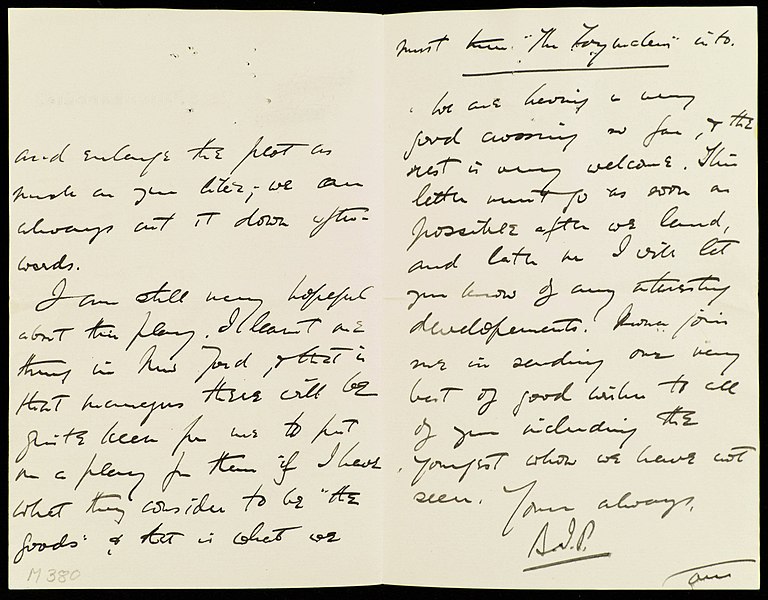 and enlarge the plot as
much as you like; we can
always cut it down after-
wards.
I am still very hopeful
about the play. I learnt one
thing in New York, & that is
that managers there will be
quite keen for me to put
on a play for them if I have
what they consider to be "the
goods" & that is what we
M 380
must turn "The Forgunders" into.
We are having a very
good crossing so far, & the
rest is very welcome. This
letter must go as soon as
possible after we land,
and later on I will let
you know of any interesting
developements. join
me in sending our very
best of good wishes to all
of you including the
youngest whom we have not
seen. Yours always,